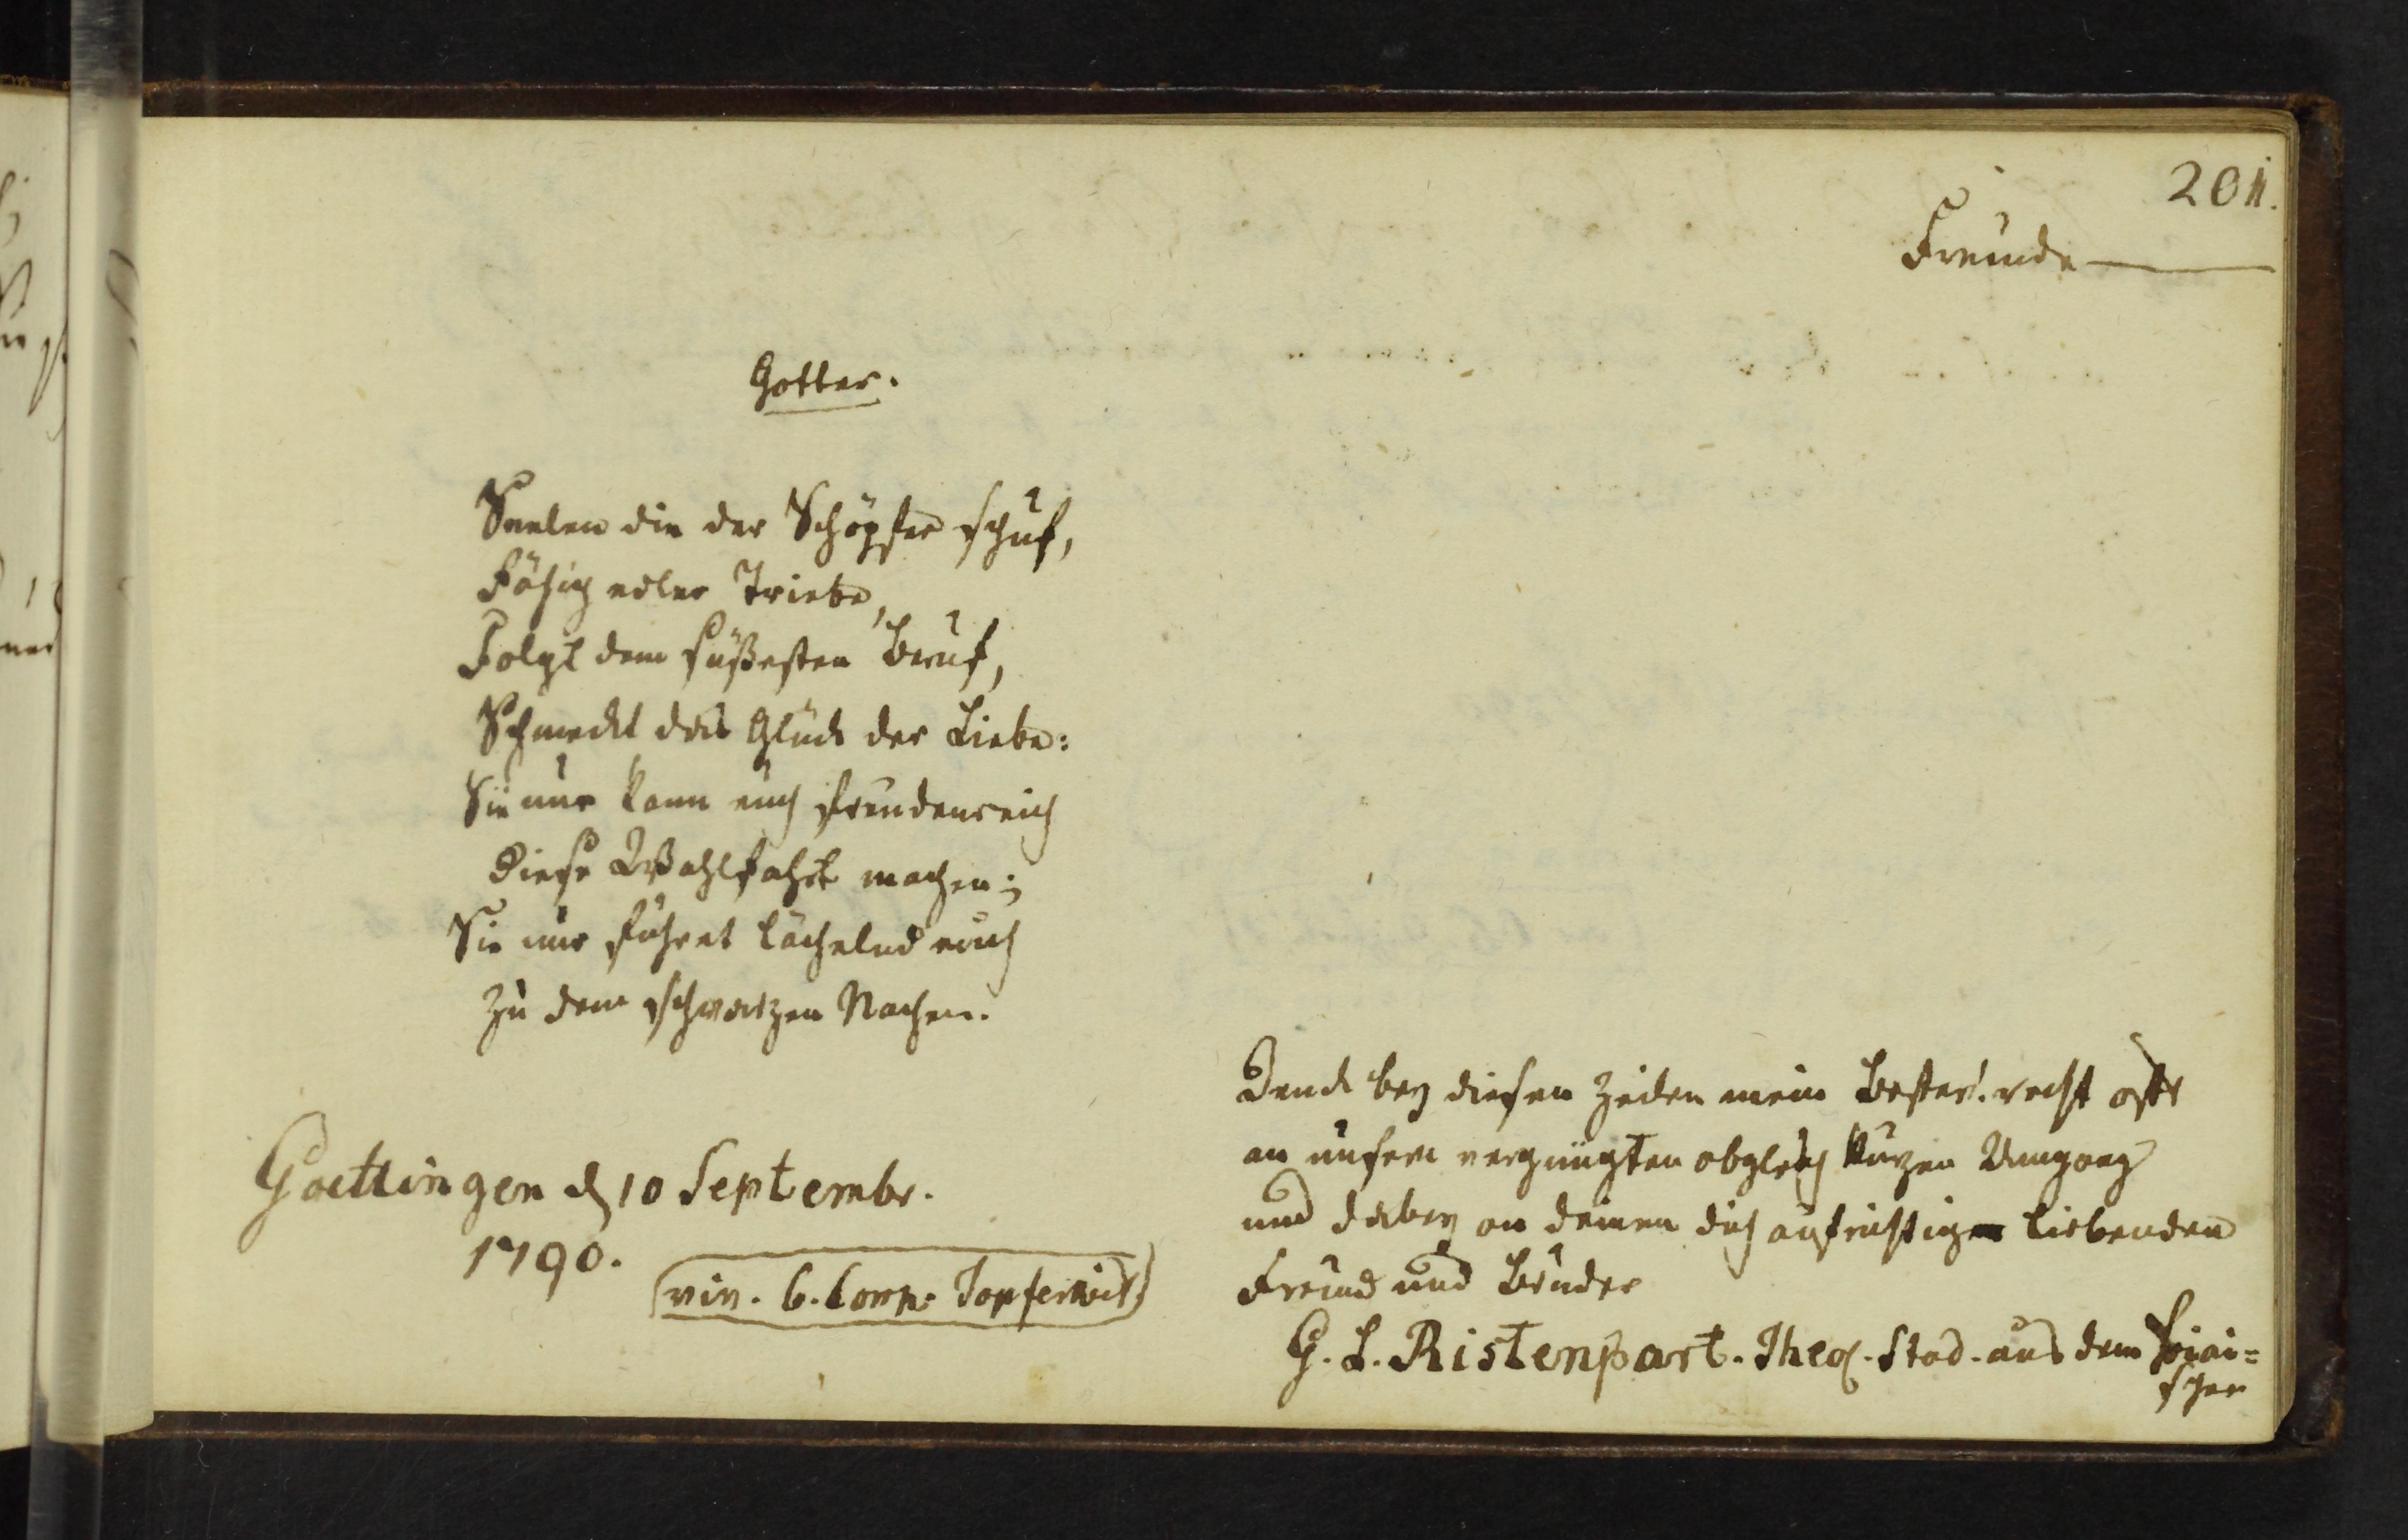 201.
Freunde
Gotter.
Seelen die der Schöpfer schuf,
Fähig edler Triebe,
Folgt dem süßesten Beruf,
Schmeckt das Glück der Liebe:
Sie nur kann euch freudenreich
Diese Wallfahrt machen;
Sie nur führet lächelnd euch
Zu dem schwarzen Nachen.
Goettingen d 10 Septembr.
1790.
Denck bey diesen Zeilen mein Bester! recht oft
an unsern vergnügten obgleich kurzen Umgang
und dabey an deinen dich aufrichtig liebenden
Freund und Bruder
G. L. Ristenpart. Theol. Stud. aus dem
schen